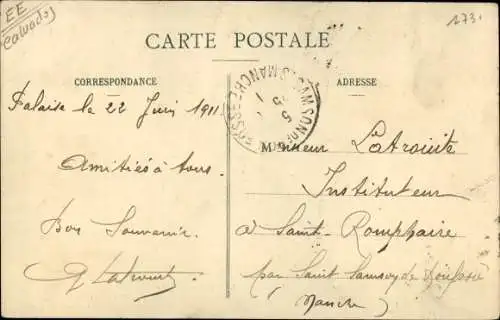 EE
Calvados
173.
CARTE POSTALE
CORRESPONDANCE
ADRESSE
Falaise le 22 Juin 1911
Amitiés à tous.
Bon Souvenir.
Monsieur Latrouite
Instituteur
à Saint-Romphaire
par Saint Samson de
(Manche)